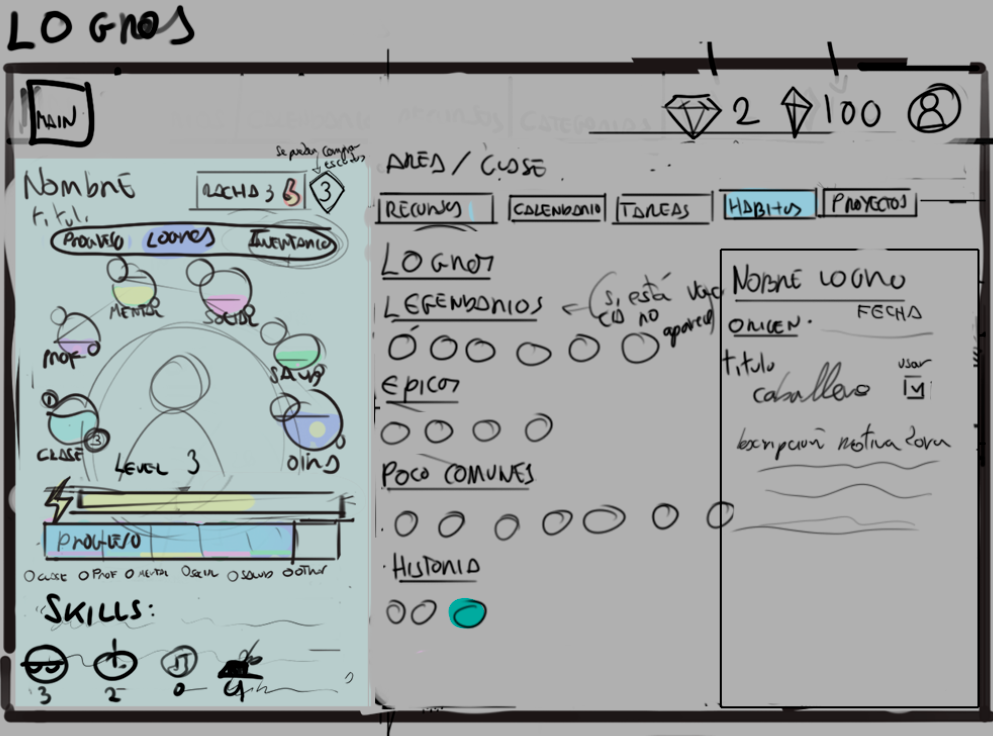 LOGROS
MAIN
2
100
Nombre
RACHA 3
3
se pueden comprar escudos
titulo
PROGRESO
LOGROS
INVENTARIO
MENTAL
SOCIAL
PROF
SALUD
1
CLASE
3
OTROS
LEVEL 3
PROGRESO
CLASE PROF MENTAL SOCIAL SALUD OTROS
SKILLS:
3
2
0
4
AREA / CLASE
RECURSOS
CALENDARIO
TAREAS
HABITOS
PROYECTOS
LOGROS
LEGENDARIOS
si está vacio no aparece
EPICOS
POCO COMUNES
HISTORIA
NOBRE LOGRO
FECHA
ORIGEN.
titulo
usar
caballero
Descripción motivadora